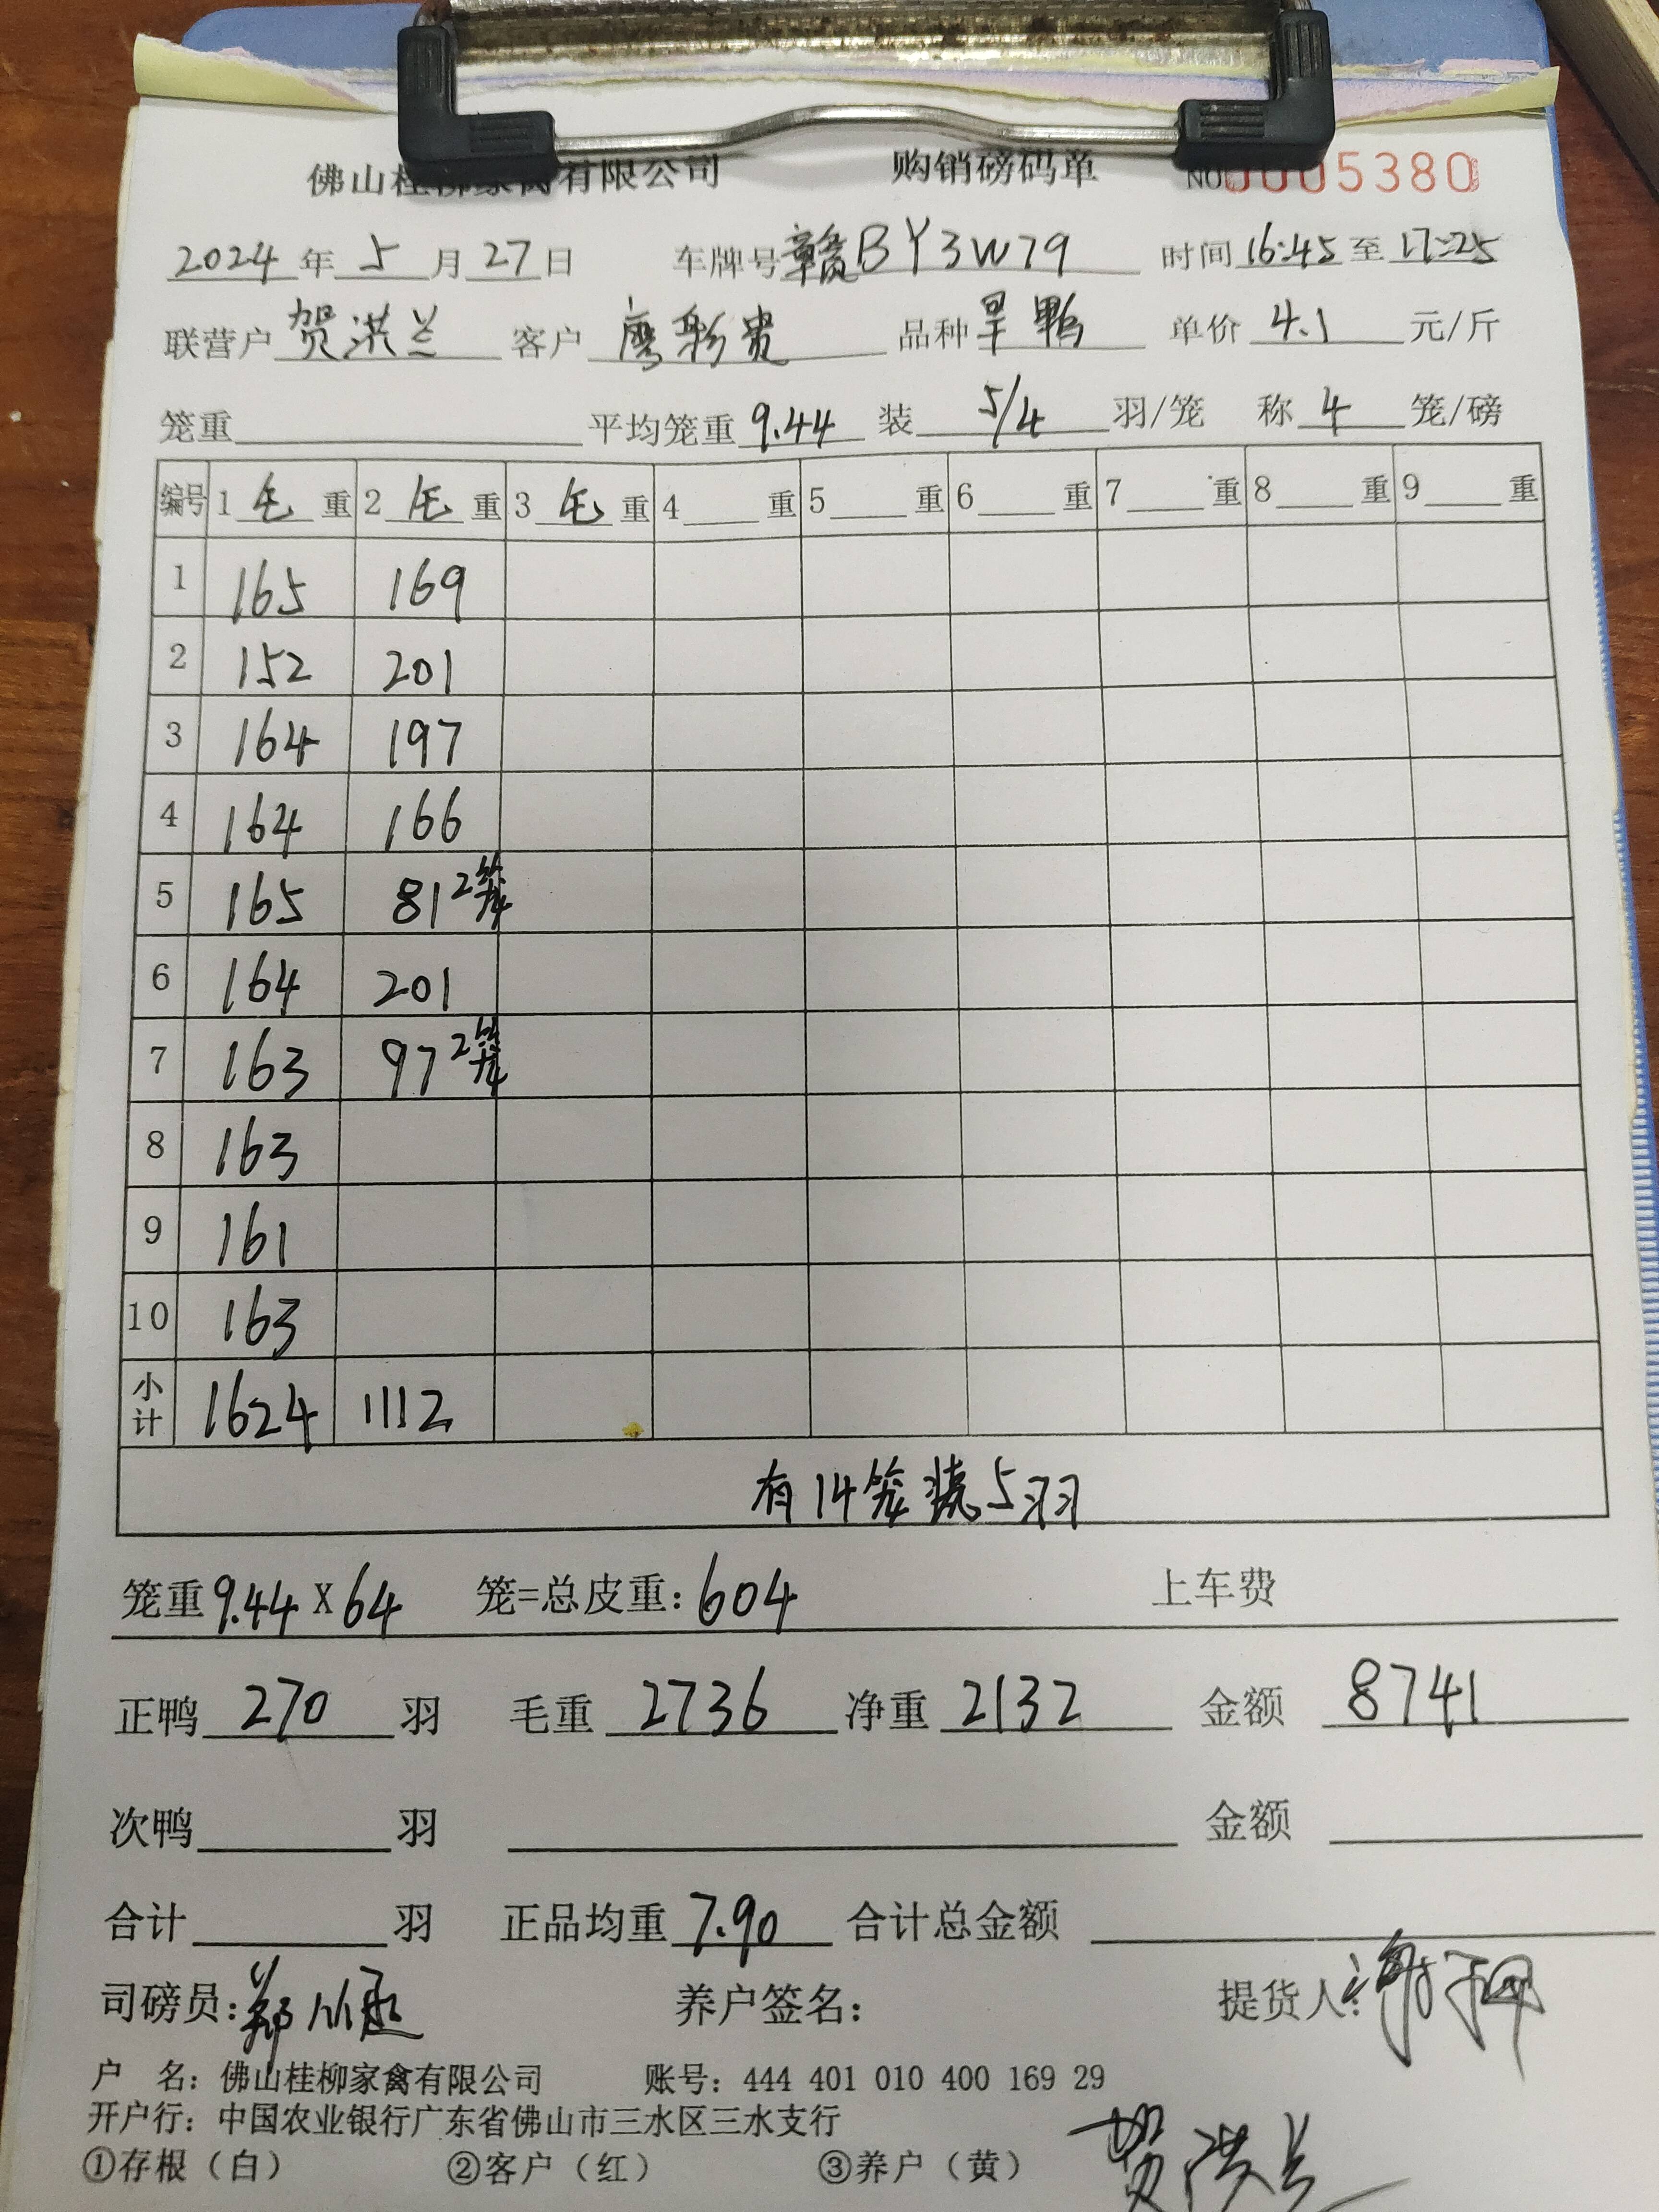 佛山桂柳家禽有限公司 购销磅码单 NO 0005380
2024年5月27日 车牌号赣BY3W79 时间16:45至17:25
联营户贺洪兰 客户廖彩贵 品种旱鸭 单价4.1元/斤
笼重 平均笼重9.44 装5/4羽/笼 称4笼/磅
编号 1毛重 2毛重 3毛重 4重 5重 6重 7重 8重 9重
1 165 169
2 152 201
3 164 197
4 164 166
5 165 81 2笼
6 164 201
7 163 97 2笼
8 163
9 161
10 163
小计 1624 1112
有14笼装5羽
笼重9.44X64 笼=总皮重:604 上车费
正鸭270羽 毛重2736 净重2132 金额8741
次鸭 羽 金额
合计 羽 正品均重7.90 合计总金额
司磅员: 养户签名: 提货人:
户 名: 佛山桂柳家禽有限公司 账号: 444 401 010 400 169 29
开户行: 中国农业银行广东省佛山市三水区三水支行
①存根（白） ②客户（红） ③养户（黄） 贺洪兰